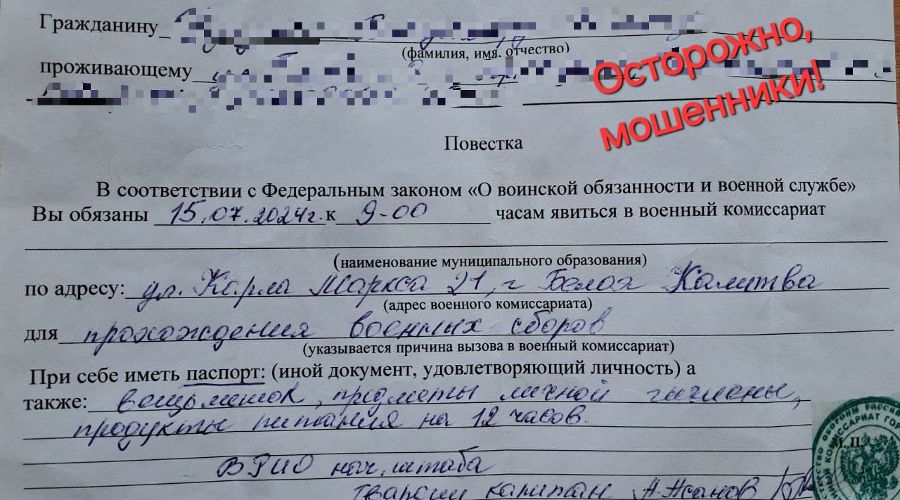 Гражданину
(фамилия, имя, отчество)
Осторожно,
мошенники!
проживающему
Повестка
В соответствии с Федеральным законом «О воинской обязанности и военной службе»
Вы обязаны 15.07.2024г. к 9-00 часам явиться в военный комиссариат
(наименование муниципального образования)
по адресу: ул. Карла Маркса 21, г Белая Калитва
(адрес военного комиссариата)
для прохождения военных сборов
(указывается причина вызова в военный комиссариат)
При себе иметь паспорт: (иной документ, удовлетворяющий личность) а
также: вещмешок, предметы личной гигиены,
продукты питания на 12 часов.
М.П.
ВРИО нач. штаба
гвардии капитан